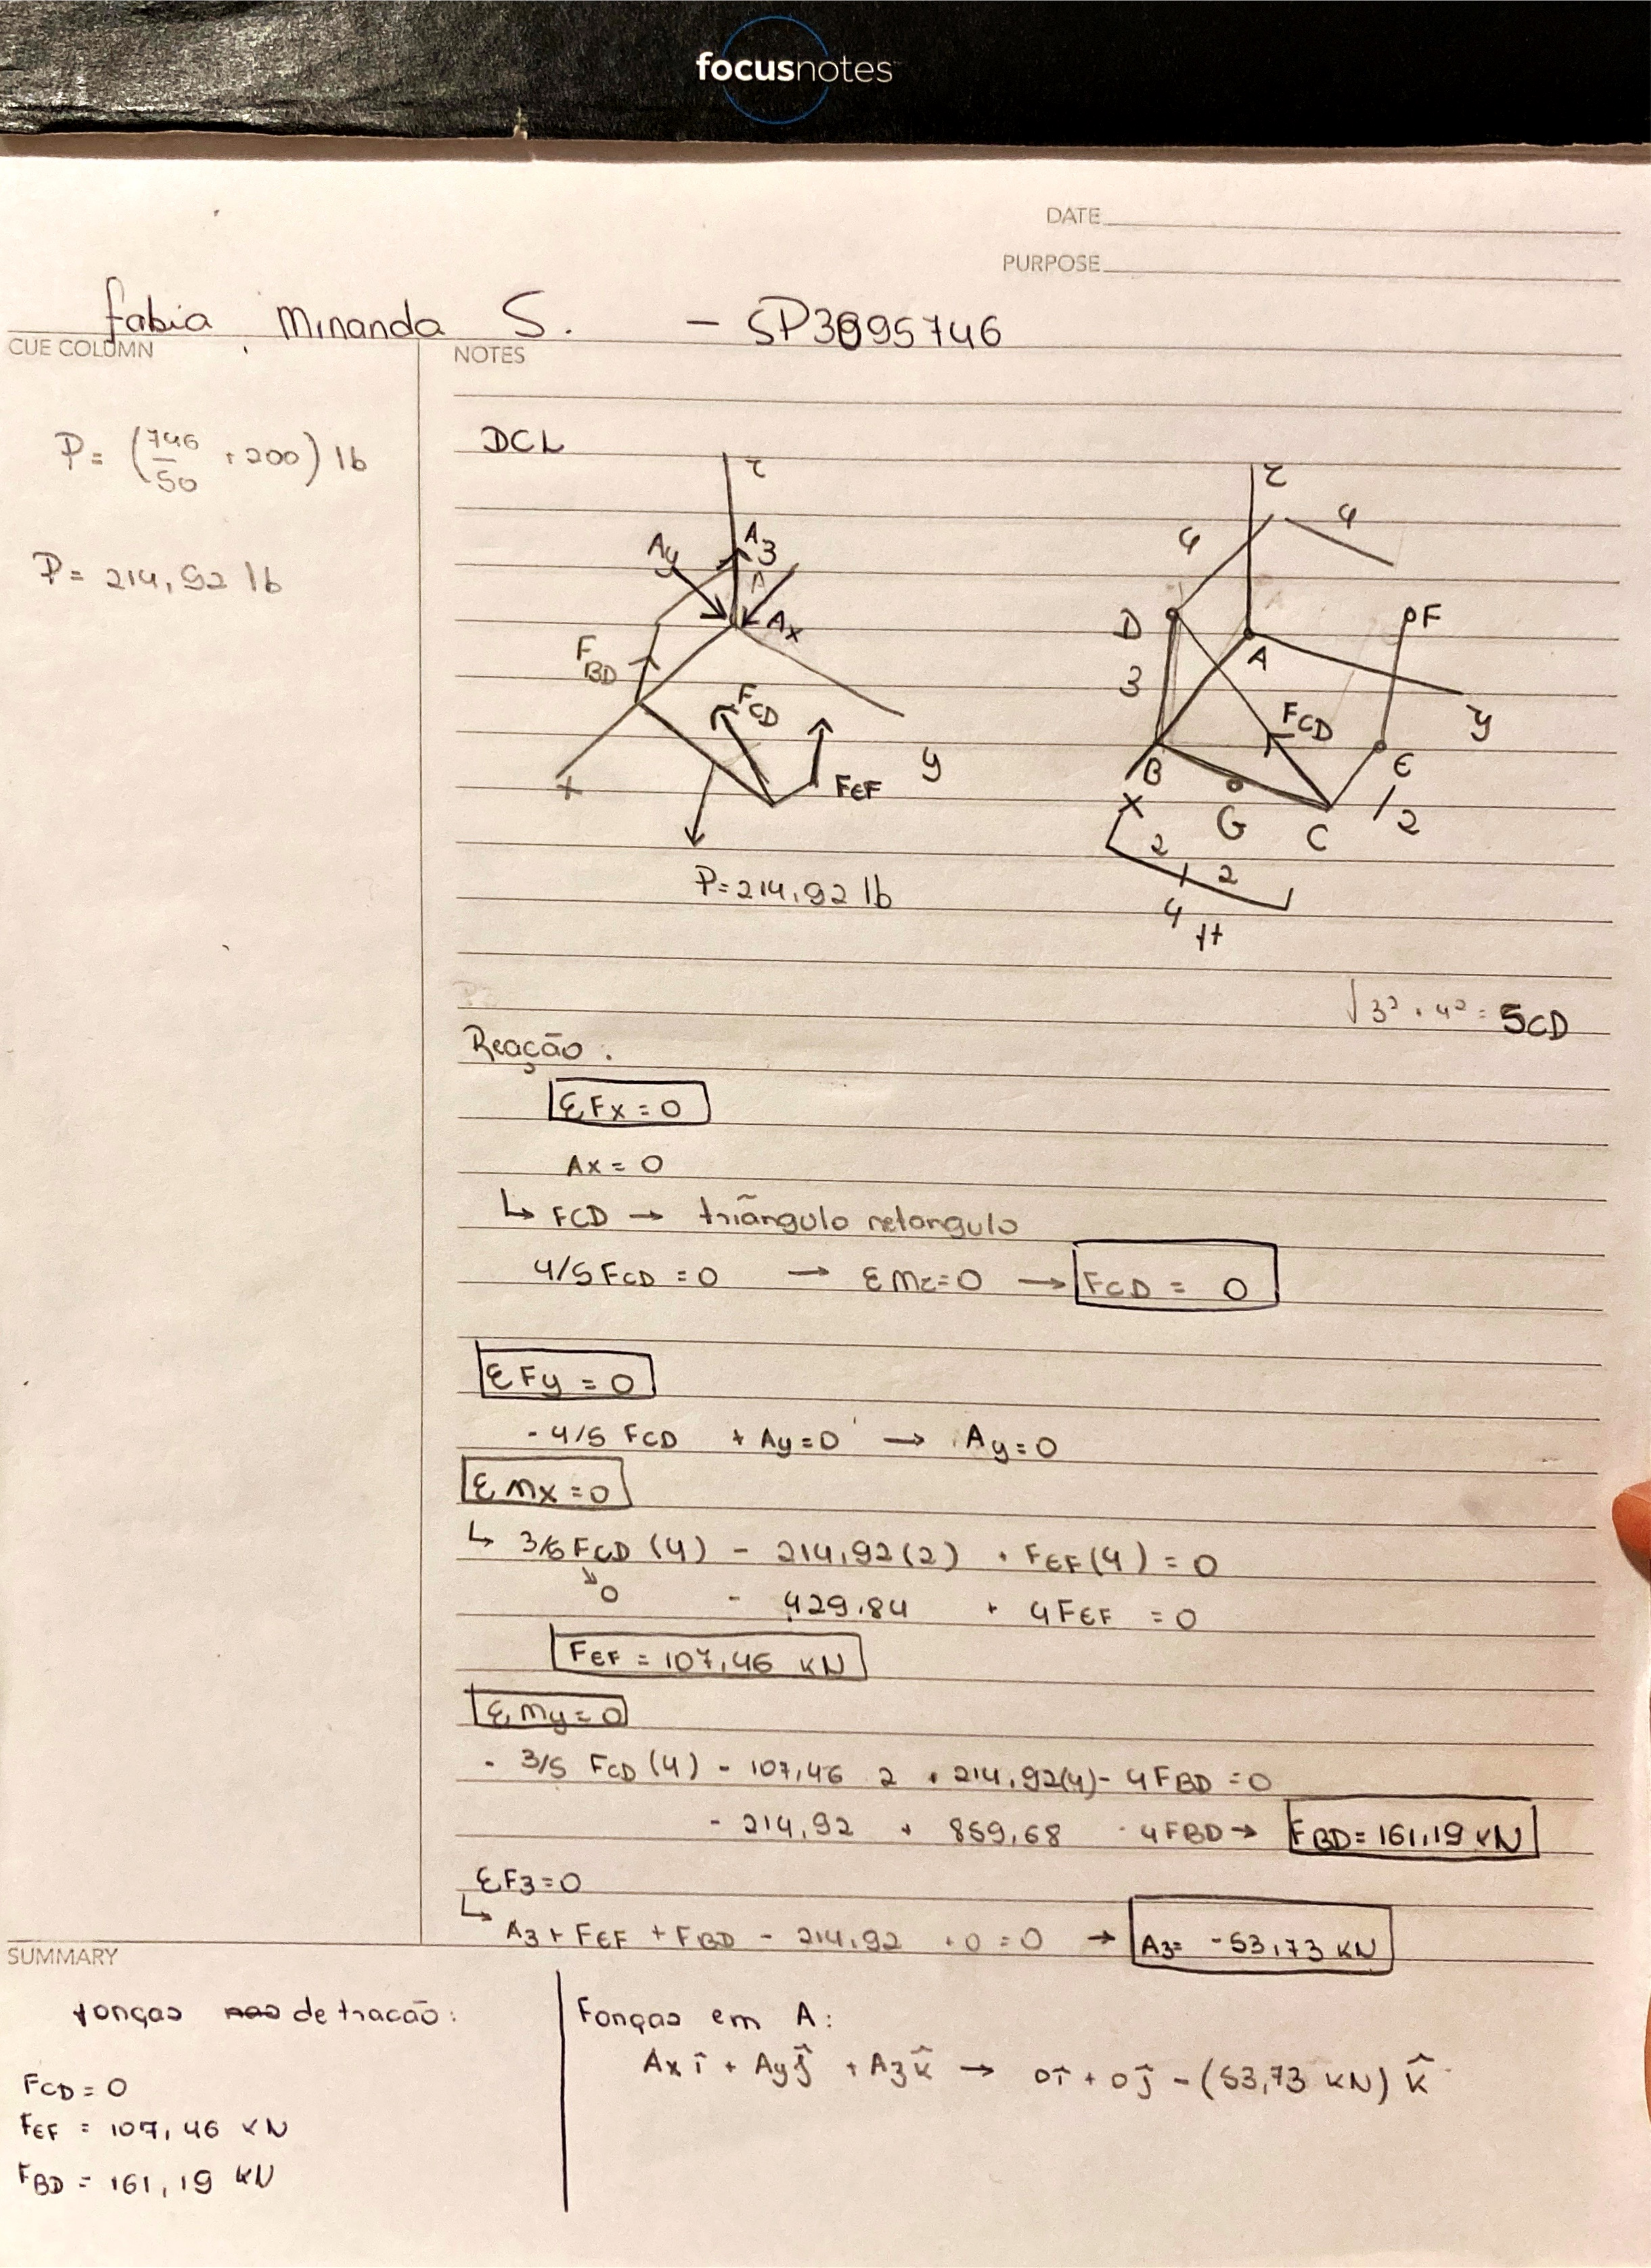 focusnotes
DATE
PURPOSE
Fabia Miranda S. - SP3095746
CUE COLUMN
NOTES
P = (746/50 + 200) lb
P = 214,92 lb
DCL
z
Ay
A3
Ax
FBD
FCD
FEF
x
y
P = 214,92 lb
z
4
4
D
A
F
3
FCD
y
B
E
x
G
C
2
2
2
4
ft
√3² + 4² = 5CD
Reação.
ΣFx = 0
Ax = 0
↳ FCD → triângulo retangulo
4/5 FCD = 0 → ΣMz = 0 → FCD = 0
ΣFy = 0
- 4/5 FCD + Ay = 0 → Ay = 0
ΣMx = 0
↳ 3/5 FCD (4) - 214,92 (2) + FEF (4) = 0
0 - 429,84 + 4FEF = 0
FEF = 107,46 KN
ΣMy = 0
- 3/5 FCD (4) - 107,46 2 + 214,92(4) - 4FBD = 0
- 214,92 + 859,68 - 4FBD → FBD = 161,19 KN
ΣF3 = 0
↳ A3 + FEF + FBD - 214,92 + 0 = 0 → A3 = -53,73 KN
SUMMARY
forças de tracão:
FCD = 0
FEF = 107,46 KN
FBD = 161,19 KN
Forças em A:
Ax î + Ay ĵ + A3 k̂ → 0î + 0ĵ - (53,73 KN) k̂